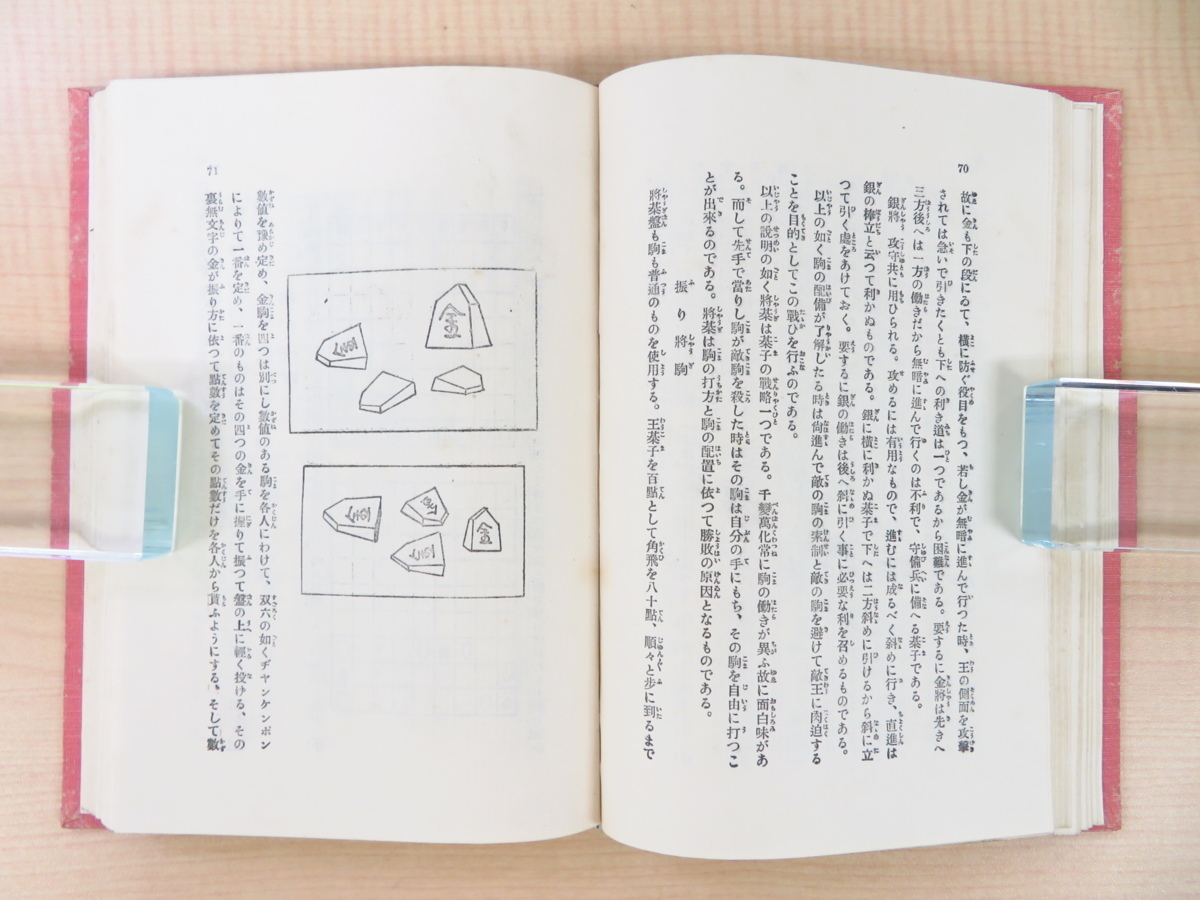 70
故に金も下の段にゐて、横に防ぐ役目をもつ、若し金が無暗に進んで行つた時、王の側面を攻擊
されては急いで引きたくとも下への利き道は一つであるから困難である。要するに金將は先きへ
三方後へは一方の働きだから無暗に進んで行くのは不利で、守備兵に備へる棊子である。
銀將 攻守共に用ひられる。攻めるには有用なもので、進むには成るべく斜めに行き、直進は
銀の棒立と云つて利かぬものである。銀に橫に利かぬ棊子で下へは二方斜めに引けるから斜に立
つて引く處をあけておく。要するに銀の働きは後へ斜に引く事に必要な利を召めるものである。
以上の如く駒の配備が了解したる時は尙進んで敵の駒の來制と敵の駒を避けて敵王に肉迫する
ことを目的としてこの戰ひを行ふのである。
以上の說明の如く將棊は棊子の戰略一つである。千變萬化常に駒の働きが異ふ故に面白味があ
る。而して先手で當りし駒が敵駒を殺した時はその駒は自分の手にもち、その駒を自由に打つこ
とが出來るのである。將棊は駒の打方と駒の配置に依つて勝敗の原因となるものである。
振り將駒
將棊盤も駒も普通のものを使用する。王棊子を百點として角飛を八十點、順々と步に到るまで
71
金
金
金
金
金
金
數值を豫め定め、金駒を四つは別にし數值のある駒を各人にわけて、双六の如くヂヤンケンポン
によりて一番を定め、一番のものはその四つの金を手に握りて振つて盤の上に輕く投ける、その
裏無文字の金が振り方に依つて點數を定めてその點數だけを各人から貰ふようにする。そして數